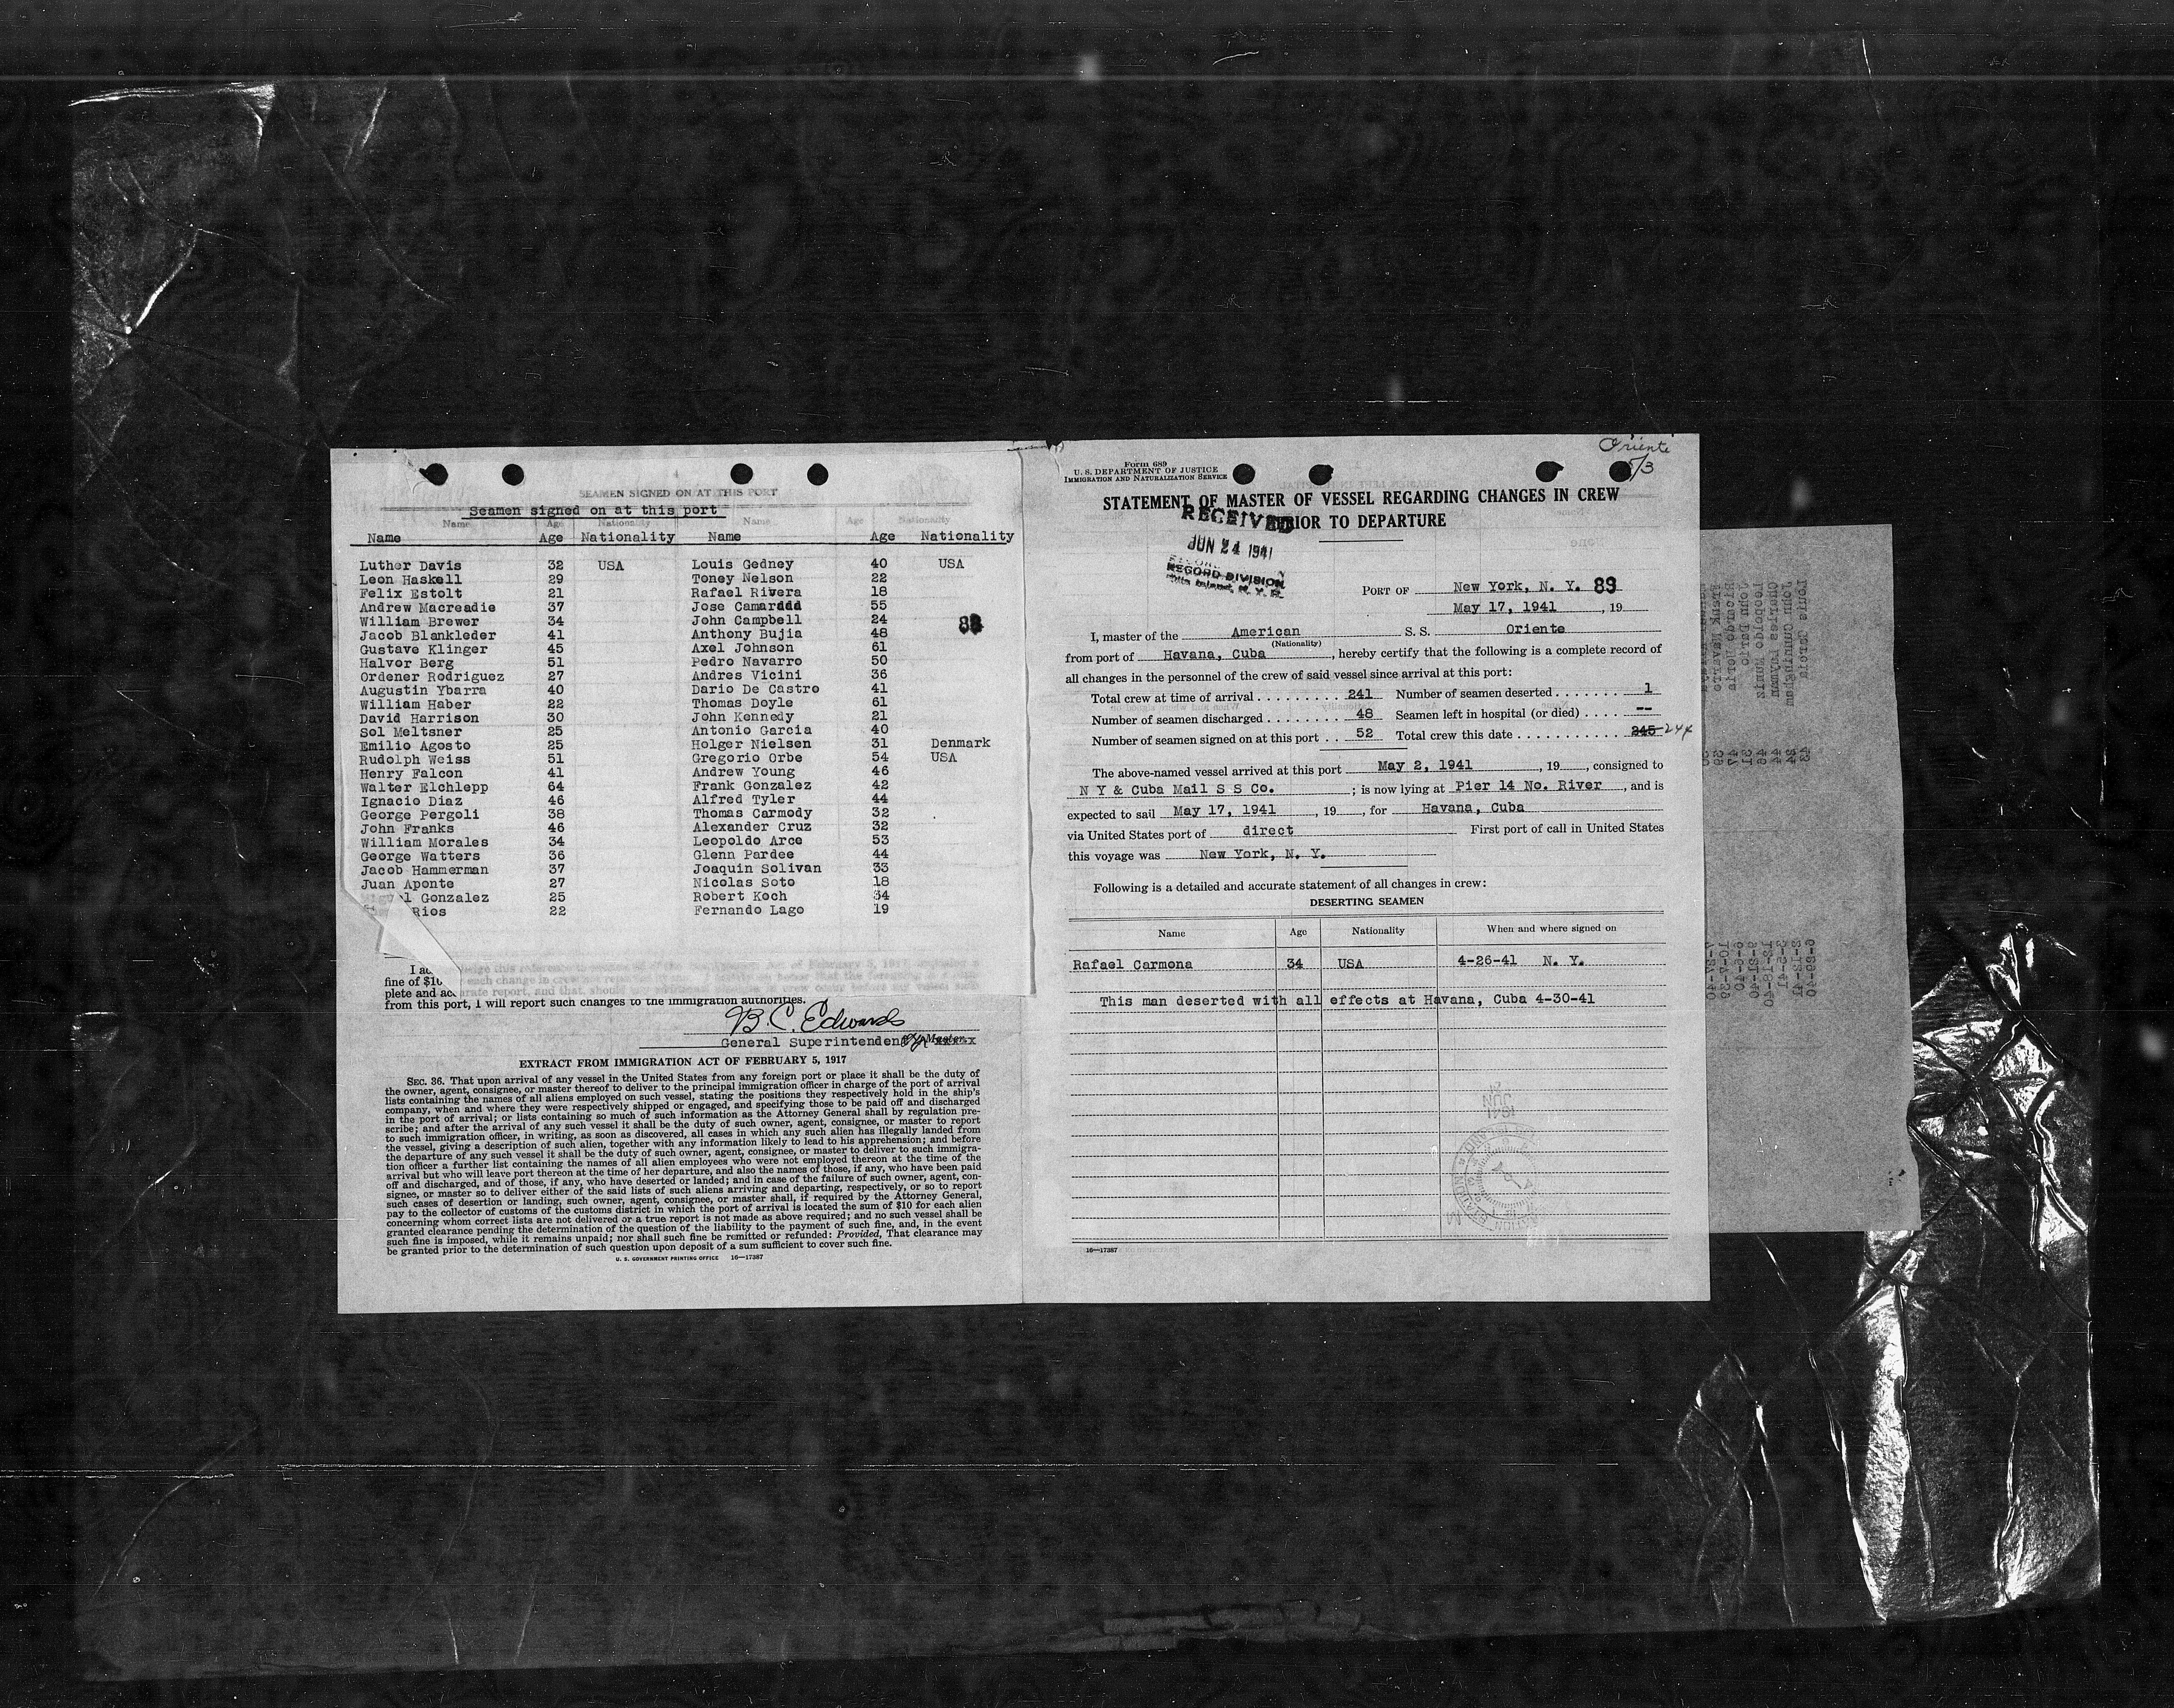 SEAMEN SIGNED ON AT THIS PORT
Seamen signed on at this port
Name Age Nationality Name Age Nationality
Name Age Nationality Name Age Nationality
Luther Davis 32 USA Louis Gedney 40 USA
Leon Haskell 29 Toney Nelson 22
Felix Estolt 21 Rafael Rivera 18
Andrew Macreadie 37 Jose Camarddd 55
William Brewer 34 John Campbell 24
Jacob Blankleder 41 Anthony Bujia 48
Gustave Klinger 45 Axel Johnson 61
Halvor Berg 51 Pedro Navarro 50
Ordener Rodriguez 27 Andres Vicini 36
Augustin Ybarra 40 Dario De Castro 41
William Haber 22 Thomas Doyle 61
David Harrison 30 John Kennedy 21
Sol Meltsner 25 Antonio Garcia 40
Emilio Agosto 25 Holger Nielsen 31 Denmark
Rudolph Weiss 51 Gregorio Orbe 54 USA
Henry Falcon 41 Andrew Young 46
Walter Elchlepp 64 Frank Gonzalez 42
Ignacio Diaz 46 Alfred Tyler 44
George Pergoli 38 Thomas Carmody 32
John Franks 46 Alexander Cruz 32
William Morales 34 Leopoldo Arce 53
George Watters 36 Glenn Pardee 44
Jacob Hammerman 37 Joaquin Solivan 33
Juan Aponte 27 Nicolas Soto 18
Gonzalez 25 Robert Koch 34
Rios 22 Fernando Lago 19
fine of $10 each change in crew
plete and
from this port, I will report such changes to the immigration authorities.
B. C. Edwards
General Superintendent Master.
EXTRACT FROM IMMIGRATION ACT OF FEBRUARY 5, 1917
SEC. 36. That upon arrival of any vessel in the United States from any foreign port or place it shall be the duty of
the owner, agent, consignee, or master thereof to deliver to the principal immigration officer in charge of the port of arrival
lists containing the names of all aliens employed on such vessel, stating the positions they respectively hold in the ship's
company, when and where they were respectively shipped or engaged, and specifying those to be paid off and discharged
in the port of arrival; or lists containing so much of such information as the Attorney General shall by regulation pre-
scribe; and after the arrival of any such vessel it shall be the duty of such owner, agent, consignee, or master to report
to such immigration officer, in writing, as soon as discovered, all cases in which any such alien has illegally landed from
the vessel, giving a description of such alien, together with any information likely to lead to his apprehension; and before
the departure of any such vessel it shall be the duty of such owner, agent, consignee, or master to deliver to such immigra-
tion officer a further list containing the names of all alien employees who were not employed thereon at the time of the
arrival but who will leave port thereon at the time of her departure, and also the names of those, if any, who have been paid
off and discharged, and of those, if any, who have deserted or landed; and in case of the failure of such owner, agent, con-
signee, or master so to deliver either of the said lists of such aliens arriving and departing, respectively, or so to report
such cases of desertion or landing, such owner, agent, consignee, or master shall, if required by the Attorney General,
pay to the collector of customs of the customs district in which the port of arrival is located the sum of $10 for each alien
concerning whom correct lists are not delivered or a true report is not made as above required; and no such vessel shall be
granted clearance pending the determination of the question of the liability to the payment of such fine, and, in the event
such fine is imposed, while it remains unpaid; nor shall such fine be remitted or refunded: Provided, That clearance may
be granted prior to the determination of such question upon deposit of a sum sufficient to cover such fine.
U. S. GOVERNMENT PRINTING OFFICE 16—17387
Oriente
5/3
Form 689
U. S. DEPARTMENT OF JUSTICE
IMMIGRATION AND NATURALIZATION SERVICE
STATEMENT OF MASTER OF VESSEL REGARDING CHANGES IN CREW
PRIOR TO DEPARTURE
RECEIVED
JUN 24 1941
RECORD DIVISION
Ellis Island, N. Y. H.
PORT OF New York, N. Y. 89
May 17, 1941, 19
I, master of the American S. S. Oriente
(Nationality)
from port of Havana, Cuba, hereby certify that the following is a complete record of
all changes in the personnel of the crew of said vessel since arrival at this port:
Total crew at time of arrival 241 Number of seamen deserted 1
Number of seamen discharged 48 Seamen left in hospital (or died) --
Number of seamen signed on at this port 52 Total crew this date 245 244
The above-named vessel arrived at this port May 2, 1941, 19, consigned to
N Y & Cuba Mail S S Co. ; is now lying at Pier 14 No. River, and is
expected to sail May 17, 1941, 19, for Havana, Cuba
via United States port of direct First port of call in United States
this voyage was New York, N. Y.
Following is a detailed and accurate statement of all changes in crew:
DESERTING SEAMEN
Name Age Nationality When and where signed on
Rafael Carmona 34 USA 4-26-41 N. Y.
This man deserted with all effects at Havana, Cuba 4-30-41
16—17387